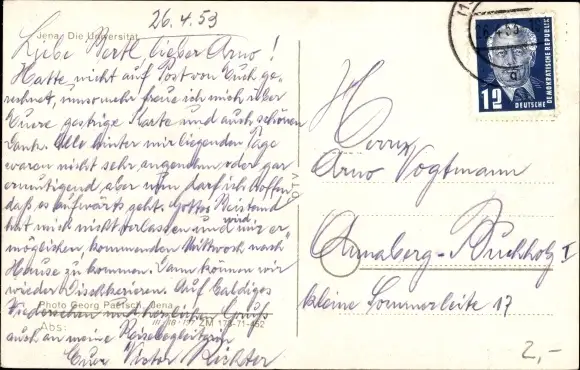 26.4.53
Jena, Die Universität
Liebe Bertl, lieber Arno!
Hatte nicht auf Post von Euch ge-
rechnet, umso mehr freue ich mich über
Eure gestrige Karte und auch schönen
Dank. Alle hinter mir liegenden Tage
waren nicht sehr angenehm oder gar
ermutigend aber nun darf ich hoffen
daß es aufwärts geht. Gottes Beistand
hat mich nicht verlassen und wird mir er-
möglichen kommenden Mittwoch nach
Hause zu kommen. Dann können wir
wieder Dischkerieren. Auf baldiges
Photo Georg Paetsch, Jena
Wiedersehen und herzlichen Gruß
Abs: ZM 178-71-452
auch an meine Reisebegleiterin
Euer Victor Richter
12
DEUTSCHE
DEMOKRATISCHE REPUBLIK
Herrn
Arno Vogtmann
Annaberg-Buchholz I
kleine Sommerleite 17
2,-